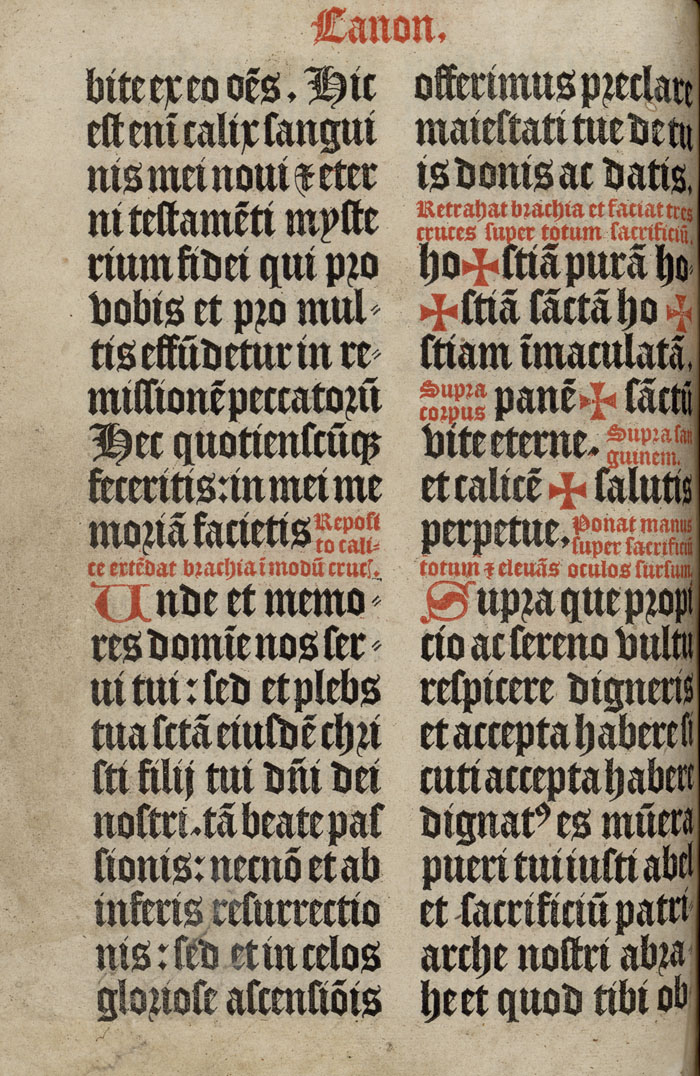 Canon.
bite ex eo oēs. Hic
est enī calix sangui
nis mei noui ⁊ eter
ni testamēti myste
rium fidei qui pro
vobis et pro mul⸗
tis effūdetur in re⸗
missionē peccatorū
Hec quotienscūqꝫ
feceritis: in mei me
moriā facietis Reposi
to cali⸗
ce extēdat brachia ī modū crucꝭ.
Unde et memo⸗
res domīe nos ser⸗
ui tui: sed et plebs
tua sctā eiusdē chri
sti filij tui dn̄i dei
nostri. tā beate pas
sionis: necnō et ab
inferis resurrectio
nis: sed et in celos
gloriose ascensiōis
offerimus preclare
maiestati tue de tu
is donis ac datis.
Retrahat brachia et faciat tres
cruces super totum sacrificiū.
ho✠stiā purā ho
✠stiā sāctā ho ✠
stiam īmaculatā.
Supra
corpus panē ✠ sāctū
vite eterne. Supra san
guinem.
et calicē ✠ salutis
perpetue. Ponat manus
super sacrificiū
totum ⁊ eleuās oculos sursum
Supra que propi
cio ac sereno vultu
respicere digneris
et accepta habere si
cuti accepta habere
dignatꝰ es mūera
pueri tui iusti abel
et sacrificiū patri
arche nostri abra
he et quod tibi ob